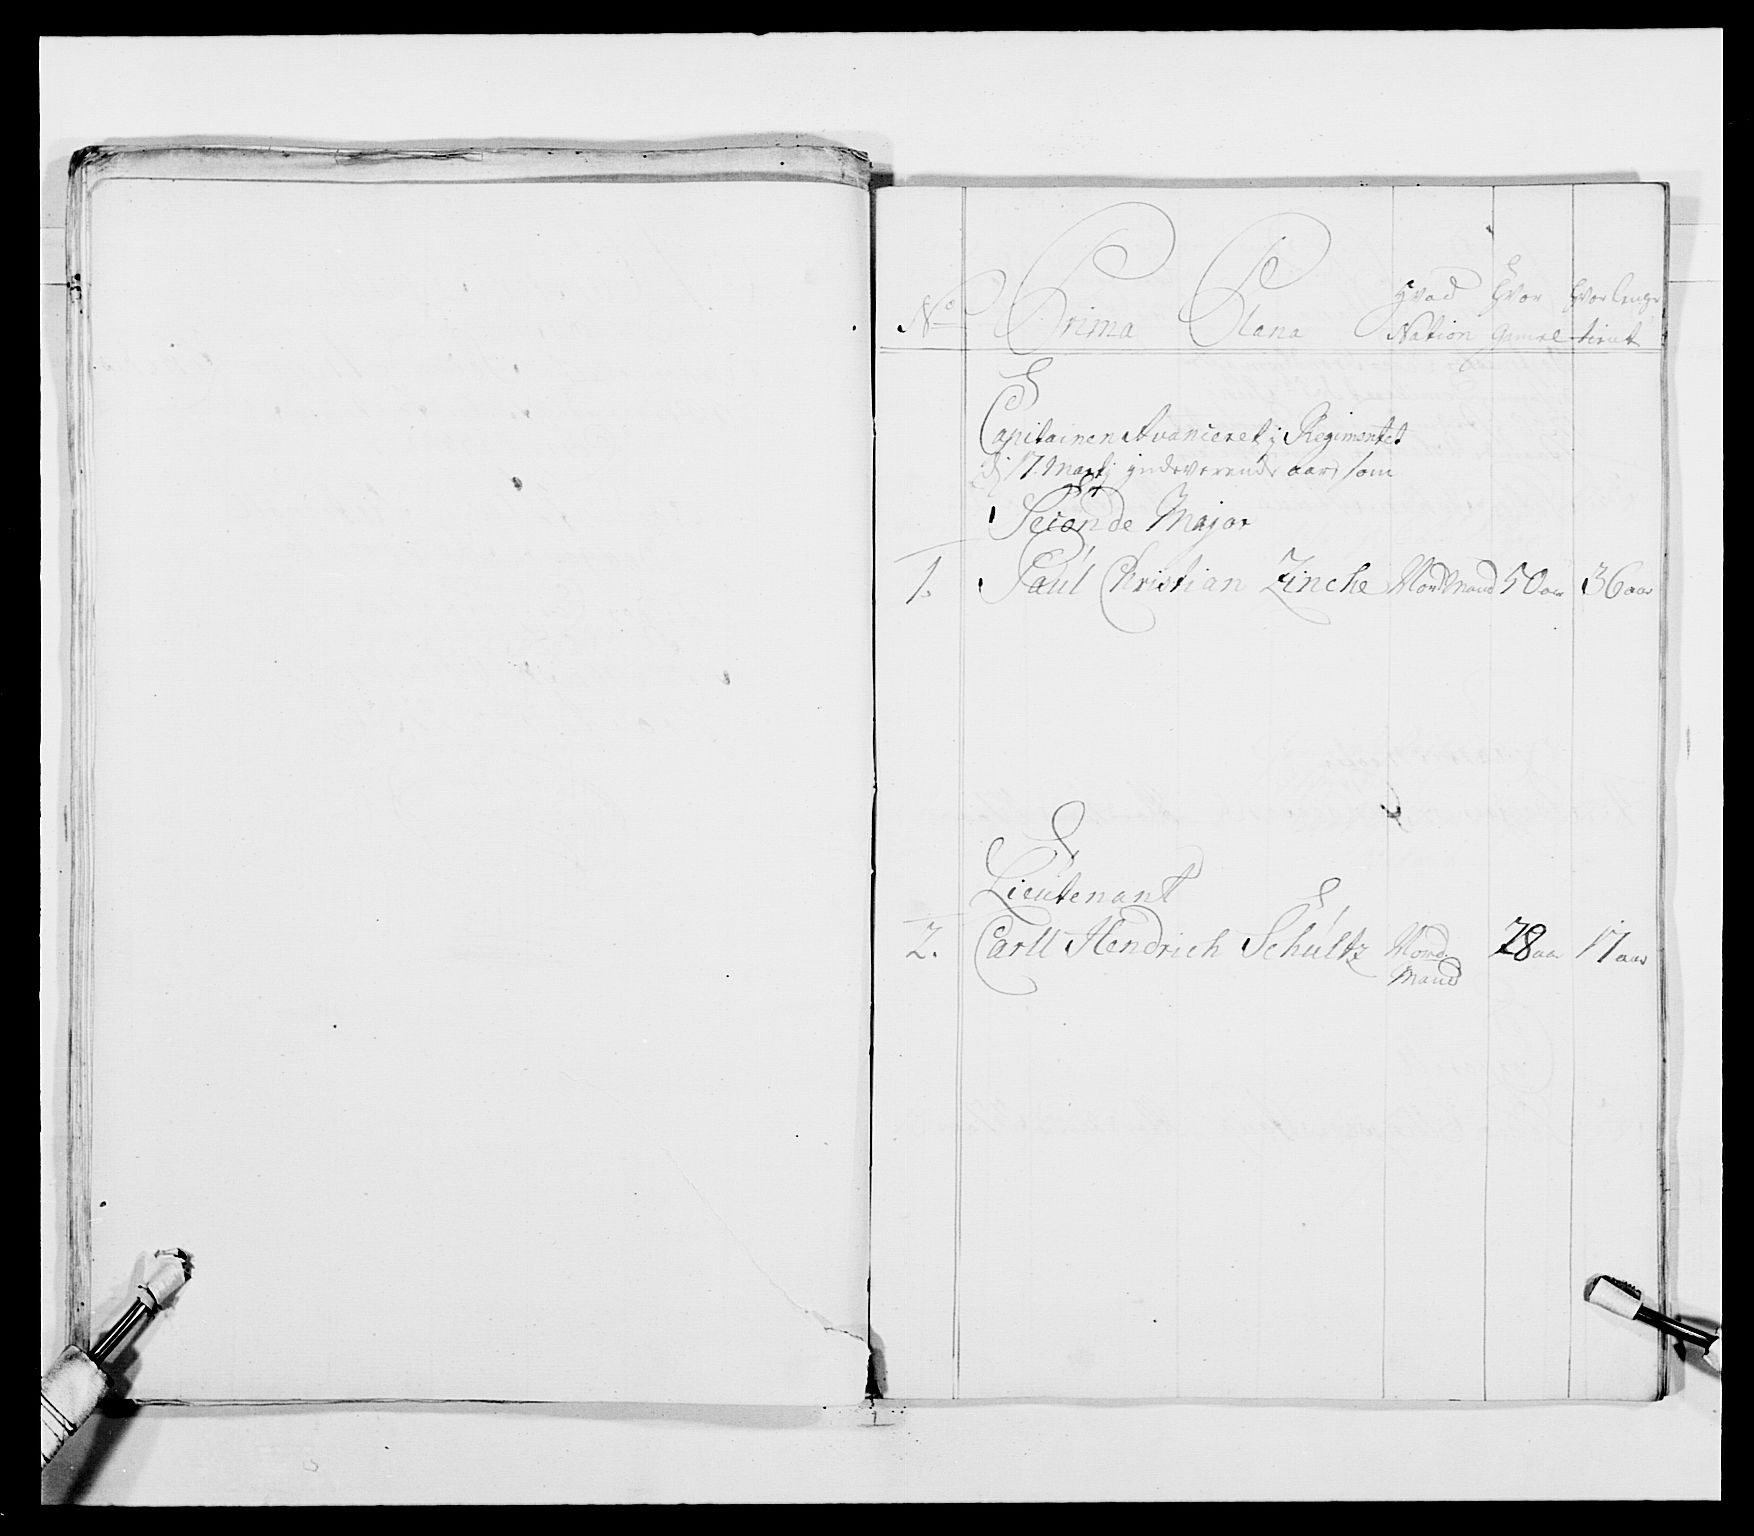 No Prima Plana Hvad Nation Hvor Gamel Hvor lenge tient
Capitainen Avanceret j Regimentet
d 17 Martj jndeverende aar som
Seconde Major
1. Paul Christian Zinche Nordmand 50 aar 36 aar
Lieutenant
2. Carll Hendrich Schultz Nord 28 aar 17 aar
Mand